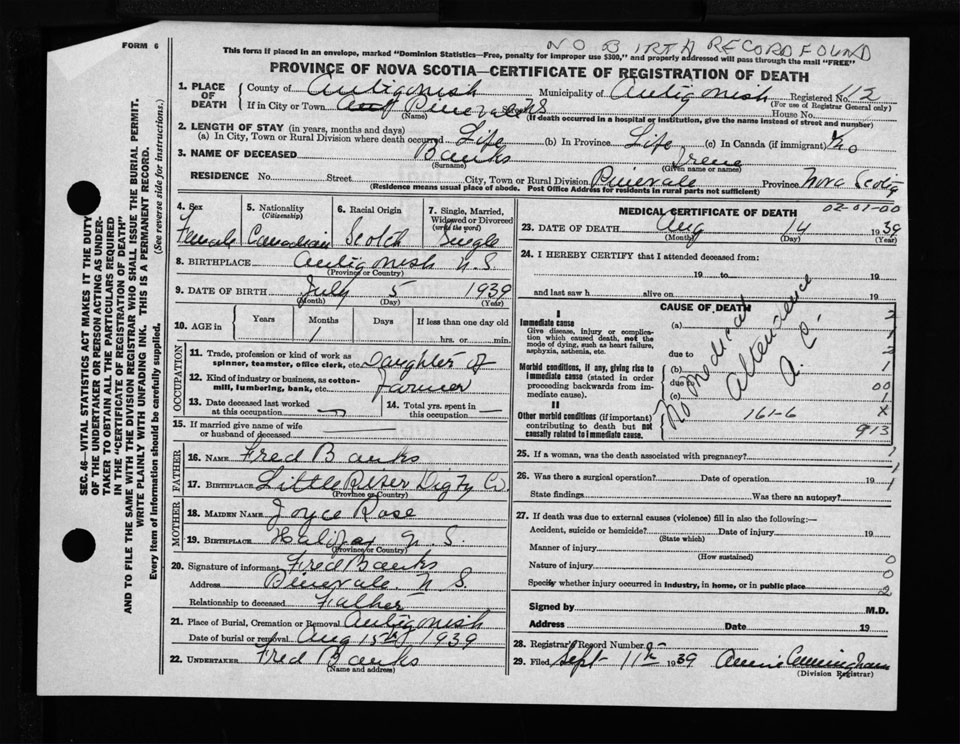 FORM 6
NO BIRTH RECORD FOUND
This form if placed in an envelope, marked "Dominion Statistics—Free, penalty for improper use $300," and properly addressed will pass through the mail "FREE"
PROVINCE OF NOVA SCOTIA—CERTIFICATE OF REGISTRATION OF DEATH
1. PLACE OF DEATH County of Antigonish Municipality of Antigonish Registered No. 112
(For use of Registrar General only)
If in City or Town Pinevale NS House No.
(Name) (If death occurred in a hospital or institution, give the name instead of street and number)
2. LENGTH OF STAY (in years, months and days)
(a) In City, Town or Rural Division where death occurred Life (b) In Province Life (c) In Canada (if immigrant)
3. NAME OF DECEASED Banks Irene
(Surname) (Given name or names)
RESIDENCE No. Street City, Town or Rural Division Pinevale Province Nova Scotia
(Residence means usual place of abode. Post Office Address for residents in rural parts not sufficient)
4. Sex Female
5. Nationality (Citizenship) Canadian
6. Racial Origin Scotch
7. Single, Married, Widowed or Divorced (write the word) Single
8. BIRTHPLACE Antigonish N.S.
(Province or Country)
9. DATE OF BIRTH July 5 1939
(Month) (Day) (Year)
10. AGE in Years Months Days If less than one day old
1 hrs. or min.
OCCUPATION
11. Trade, profession or kind of work as spinner, teamster, office clerk, etc. Daughter of
12. Kind of industry or business, as cotton-mill, lumbering, bank, etc. Farmer
13. Date deceased last worked at this occupation
14. Total yrs. spent in this occupation
15. If married give name of wife or husband of deceased
FATHER
16. NAME Fred Banks
17. BIRTHPLACE Little River Digby Co.
(Province or Country)
MOTHER
18. MAIDEN NAME Joyce Rose
19. BIRTHPLACE Halifax N.S.
(Province or Country)
20. Signature of informant Fred Banks
Address Pinevale N S
Relationship to deceased Father
21. Place of Burial, Cremation or Removal Antigonish
Date of burial or removal Aug 15th 1939
22. UNDERTAKER Fred Banks
(Name and address)
MEDICAL CERTIFICATE OF DEATH 02-01-00
23. DATE OF DEATH Aug 14 1939
(Month) (Day) (Year)
24. I HEREBY CERTIFY that I attended deceased from:
19 to 19
and last saw h alive on 19
CAUSE OF DEATH
I
Immediate cause
Give disease, injury or complication which caused death, not the mode of dying, such as heart failure, asphyxia, asthenia, etc.
(a)
due to
Morbid conditions, if any, giving rise to immediate cause (stated in order proceeding backwards from immediate cause).
(b)
due to
(c)
II
Other morbid conditions (if important) contributing to death but not causally related to immediate cause.
No medical attendance
A. C.
161-6
913
25. If a woman, was the death associated with pregnancy?
26. Was there a surgical operation? Date of operation 19
State findings Was there an autopsy?
27. If death was due to external causes (violence) fill in also the following:—
Accident, suicide or homicide? Date of injury 19
(State which)
Manner of injury
(How sustained)
Nature of injury
Specify whether injury occurred in industry, in home, or in public place
Signed by M.D.
Address Date 19
28. Registrar's Record Number
29. Filed Sept 11th 1939 Annie Cunningham
(Division Registrar)
SEC. 46—VITAL STATISTICS ACT MAKES IT THE DUTY
OF THE UNDERTAKER OR PERSON ACTING AS UNDER-
TAKER TO OBTAIN ALL THE PARTICULARS REQUIRED
IN THE "CERTIFICATE OF REGISTRATION OF DEATH"
AND TO FILE THE SAME WITH THE DIVISION REGISTRAR WHO SHALL ISSUE THE BURIAL PERMIT.
WRITE PLAINLY WITH UNFADING INK. THIS IS A PERMANENT RECORD.
Every item of information should be carefully supplied. (See reverse side for instructions.)